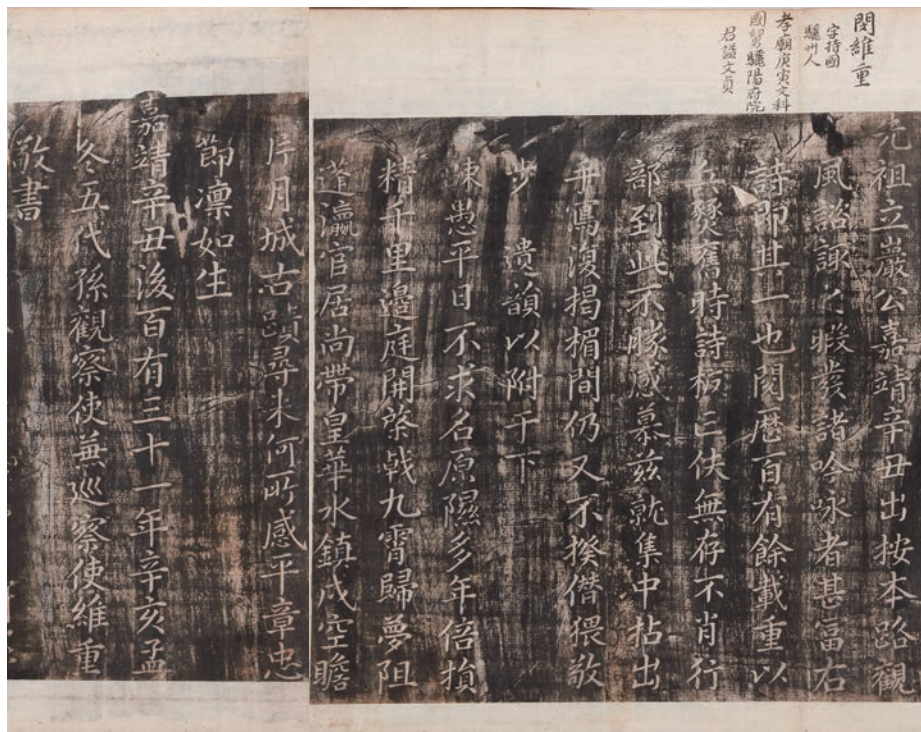 閔維重
字持國
驪州人
孝廟庚寅文科
國舅驪陽府院
君諡文貞
先祖立巖公嘉靖辛丑出按本路觀
風諮諏之暇發諸吟咏者甚富右
詩卽其一也閱歷百有餘載重以
兵燹舊時詩板已佚無存不肖行
部到此不勝感慕茲就集中拈出
手寫復揭楣間仍又不揆僭猥敬
步 遺韻以附于下
踈愚平日不求名原隰多年倍損
精千里邊庭開棨戟九霄歸夢阻
蓬瀛官居尚帶皇華水鎮戍空瞻
片月城古蹟尋來何所感平章忠
節凜如生
嘉靖辛丑後百有三十一年辛亥孟
冬五代孫觀察使兼巡察使維重
敬書